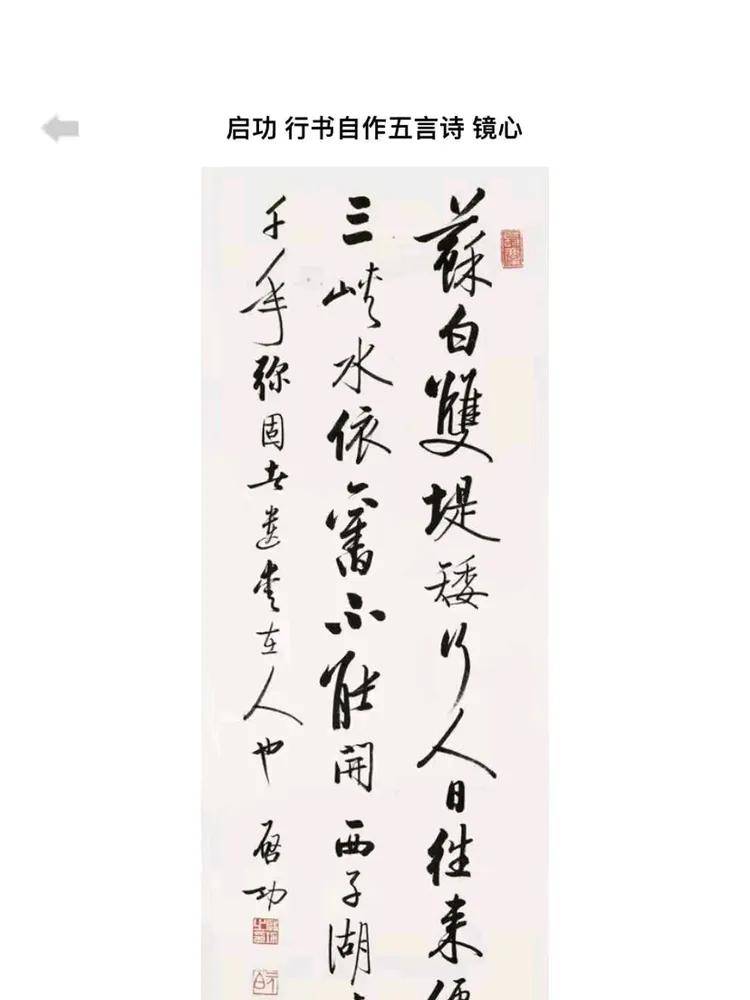 启功 行书自作五言诗 镜心
蘇白雙堤矮行人日往来便
三峡水依舊不能開西子湖
千年弥固者遺愛在人也 启功